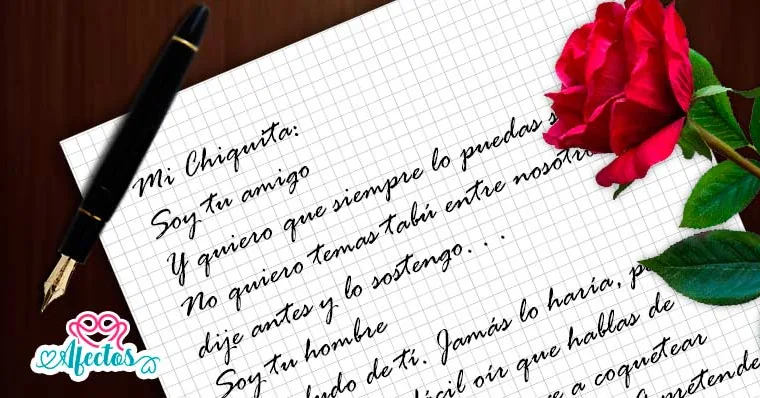 Mi Chiquita:
Soy tu amigo
Y quiero que siempre lo puedas
No quiero temas tabú entre
dije antes y lo sostengo...
Soy tu hombre
de tí. Jamás lo haría,
oír que hablas de
a coquetear
Afectos